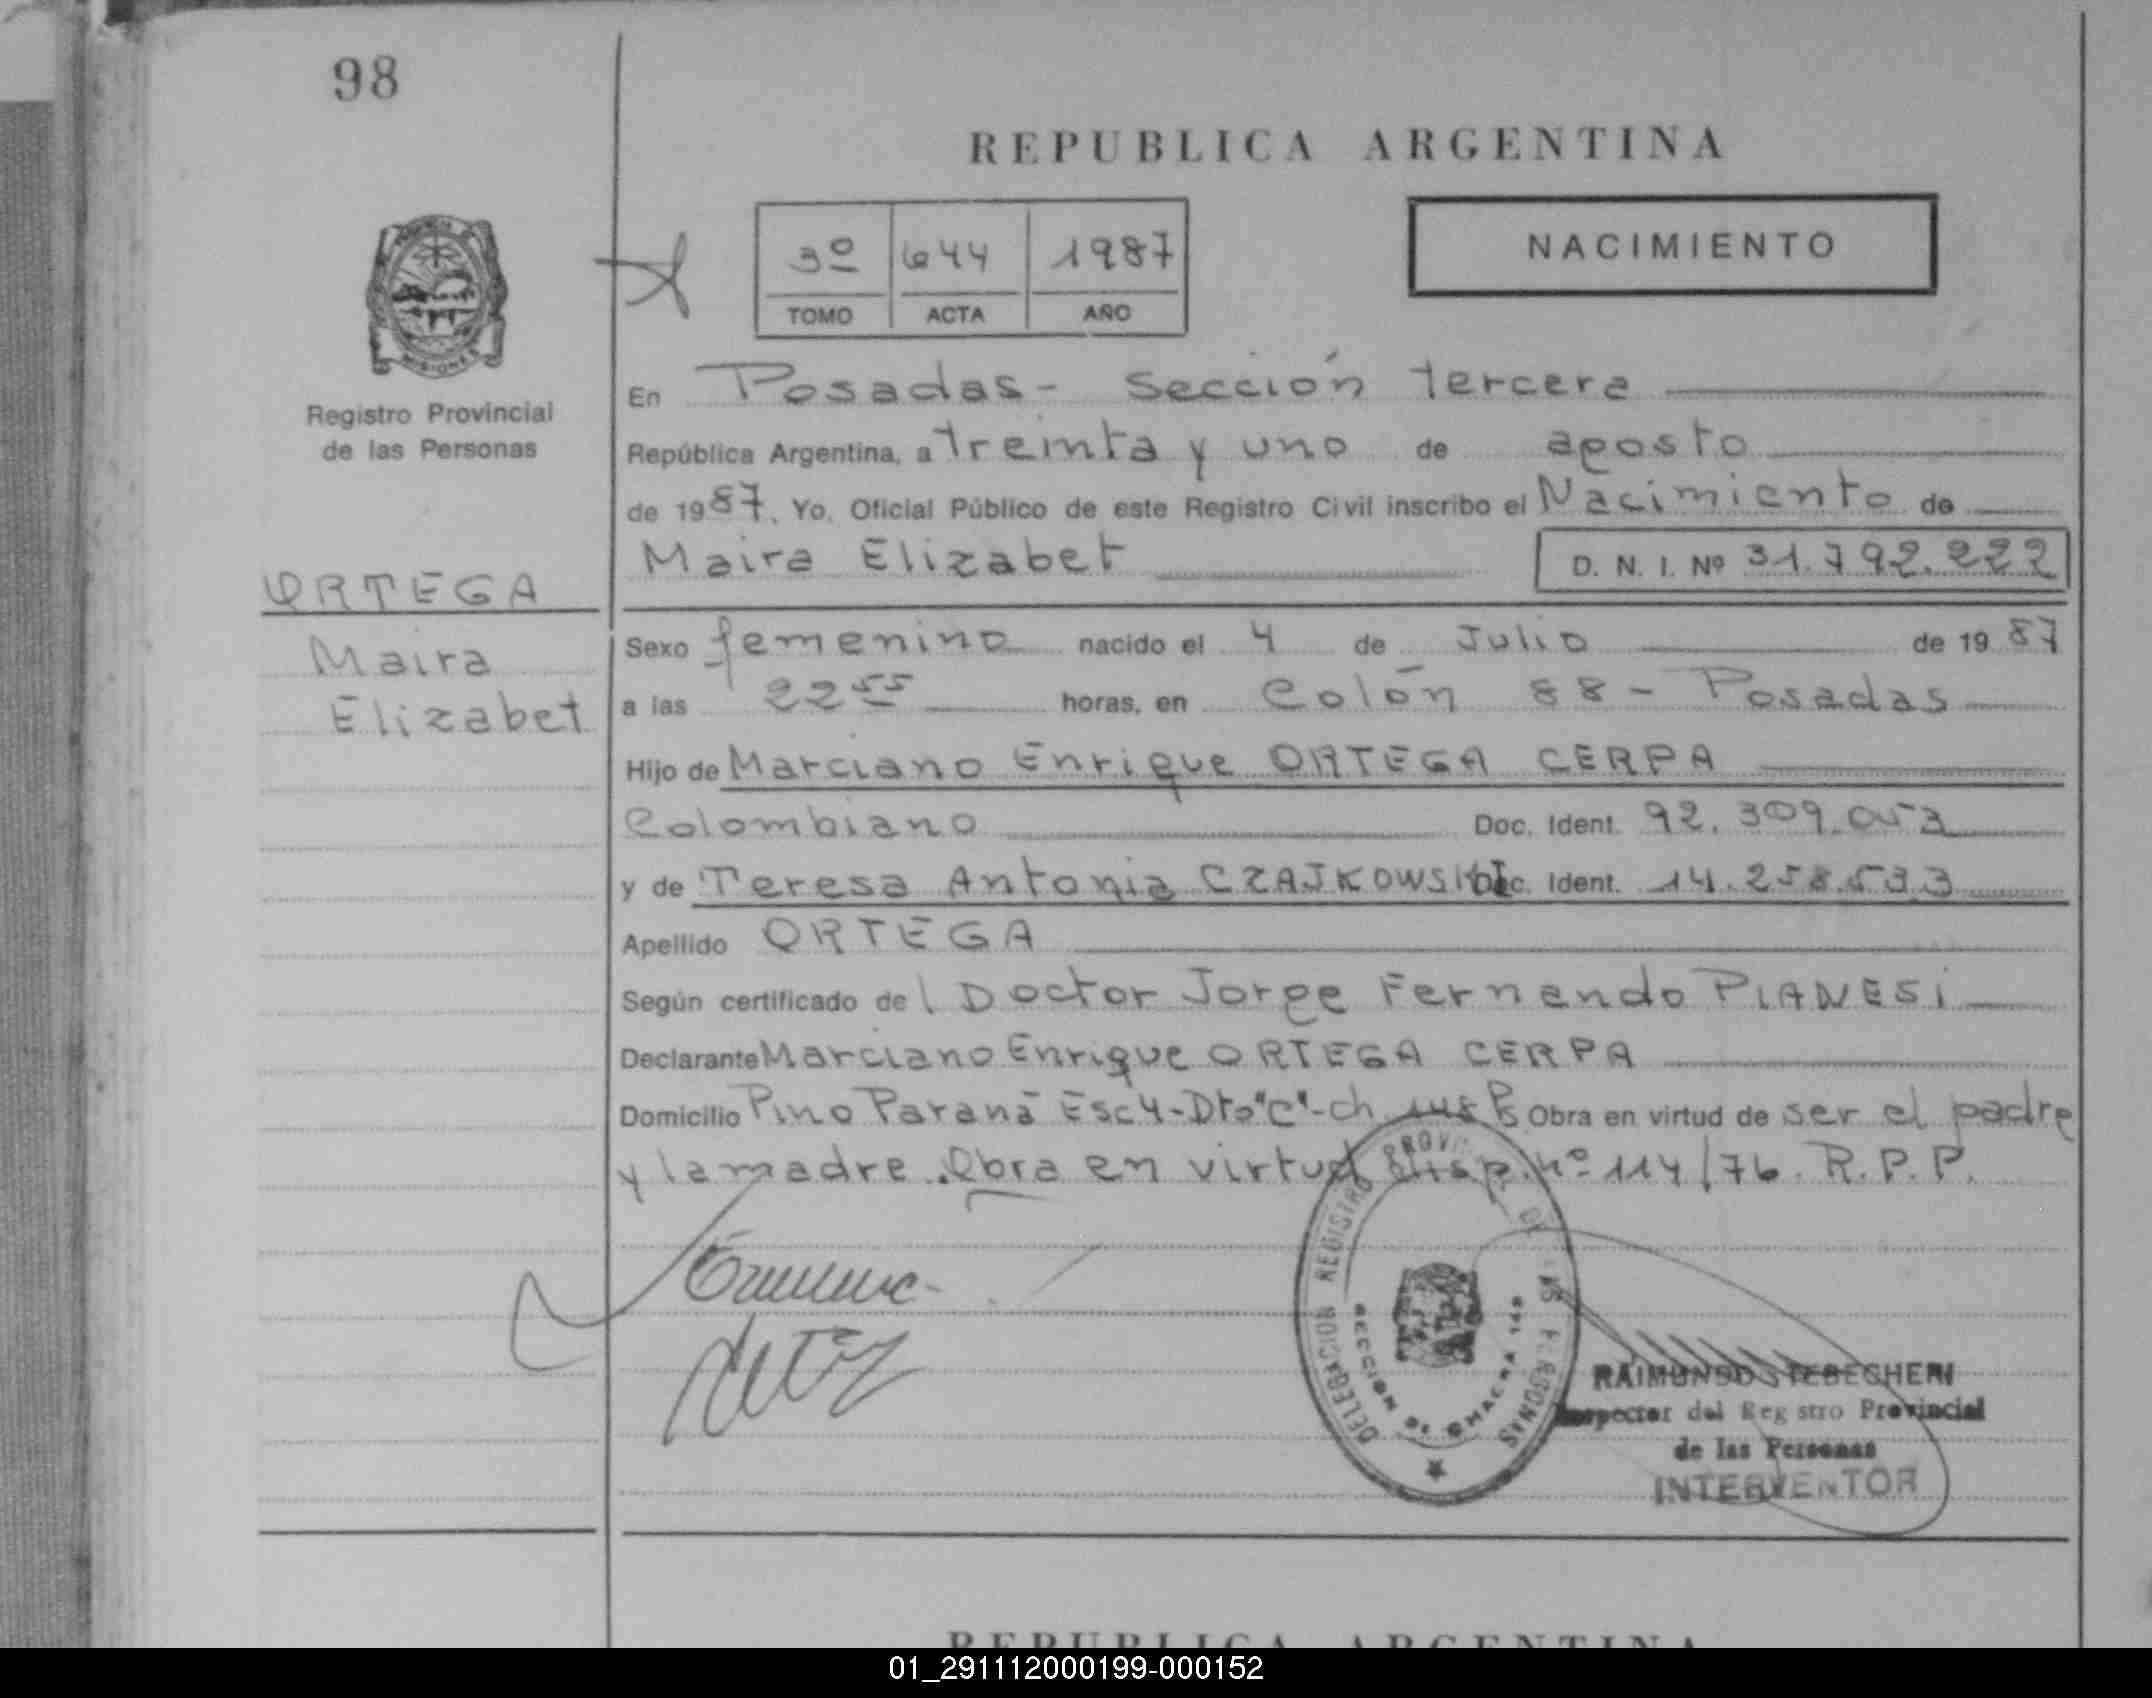 98
REPUBLICA ARGENTINA
3º 644 1987
TOMO ACTA AÑO
NACIMIENTO
MISIONES
Registro Provincial
de las Personas
En Posadas - Sección tercera
República Argentina, a treinta y uno de agosto
de 1987. Yo, Oficial Público de este Registro Civil inscribo el Nacimiento de
Maira Elizabet D. N. I. Nº 31.792.222
ORTEGA
Maira
Elizabet
Sexo femenino nacido el 4 de Julio de 1987
a las 22 55 horas, en Colón 88 - Posadas
Hijo de Marciano Enrique ORTEGA CERPA
Colombiano Doc. Ident. 92.309.053
y de Teresa Antonia CZAJKOWSKI Doc. Ident. 14.258.533
Apellido ORTEGA
Según certificado del Doctor Jorge Fernando PIANESI
Declarante Marciano Enrique ORTEGA CERPA
Domicilio Pino Paraná Esc 4 - Dto "C" - ch 148 Ps Obra en virtud de ser el padre
y la madre. Obra en virtud Disp. nº 114/76. R.P.P.
DELEGACION REGISTRO PROVI DE LAS PERSONAS
SECCION DE CHACRA 148
RAIMUNDO STEBECHERI
Inspector del Reg stro Provincial
de las Personas
INTERVENTOR
REPUBLICA ARGENTINA
01_291112000199-000152